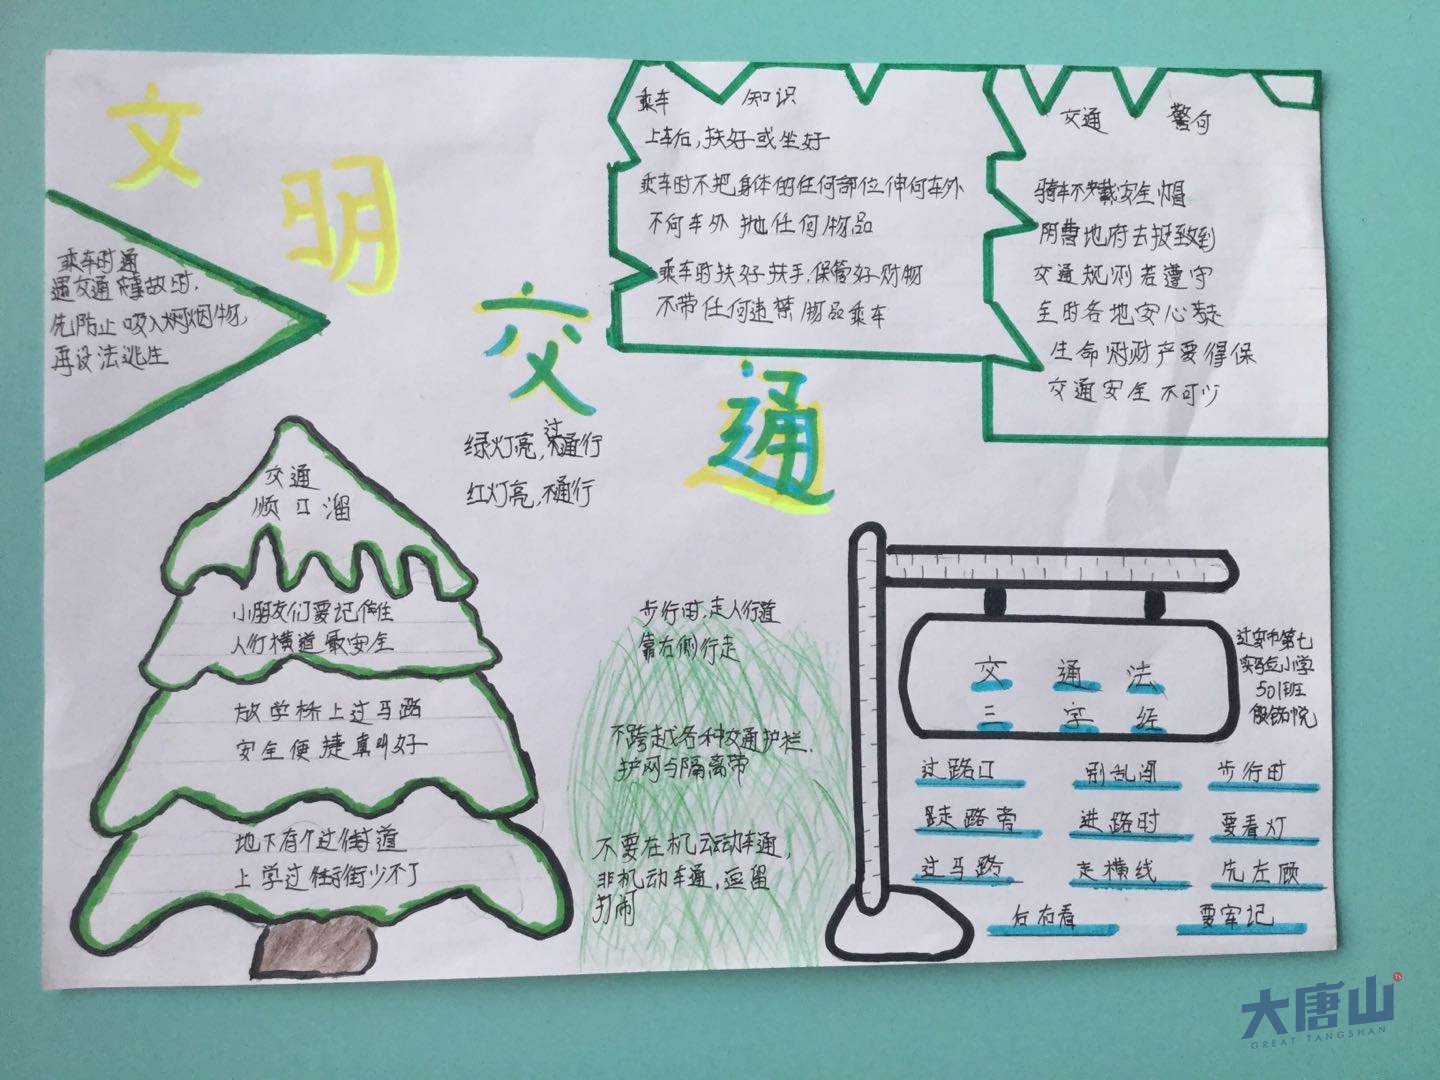 文明交通
乘车时通
遇交通事故时,
先防止吸入烟物,
再设法逃生
乘车 知识
上车后,扶好或坐好
乘车时不把身体的任何部位伸向车外
不向车外抛任何物品
乘车时扶好扶手,保管好财物
不带任何违禁物品乘车
交通 警句
骑车不戴安全帽
阴曹地府去报到
交通规则若遵守
全时各地安心走
生命财产要得保
交通安全不可少
绿灯亮,过通行
红灯亮,不通行
交通
顺口溜
小朋友们要记住
人行横道最安全
放学桥上过马路
安全便捷真叫好
地下有个过街道
上学过街少不了
步行时,走人行道
靠右侧行走
不跨越各种交通护栏,
护网与隔离带
不要在机动车通,
非机动车通,逗留
打闹
交通法
三字经
过路口 别乱闯 步行时
走路旁 进路时 要看灯
过马路 走横线 先左顾
后右看 要牢记
迁安市第七
实验小学
501班
大唐山
GREAT TANGSHAN